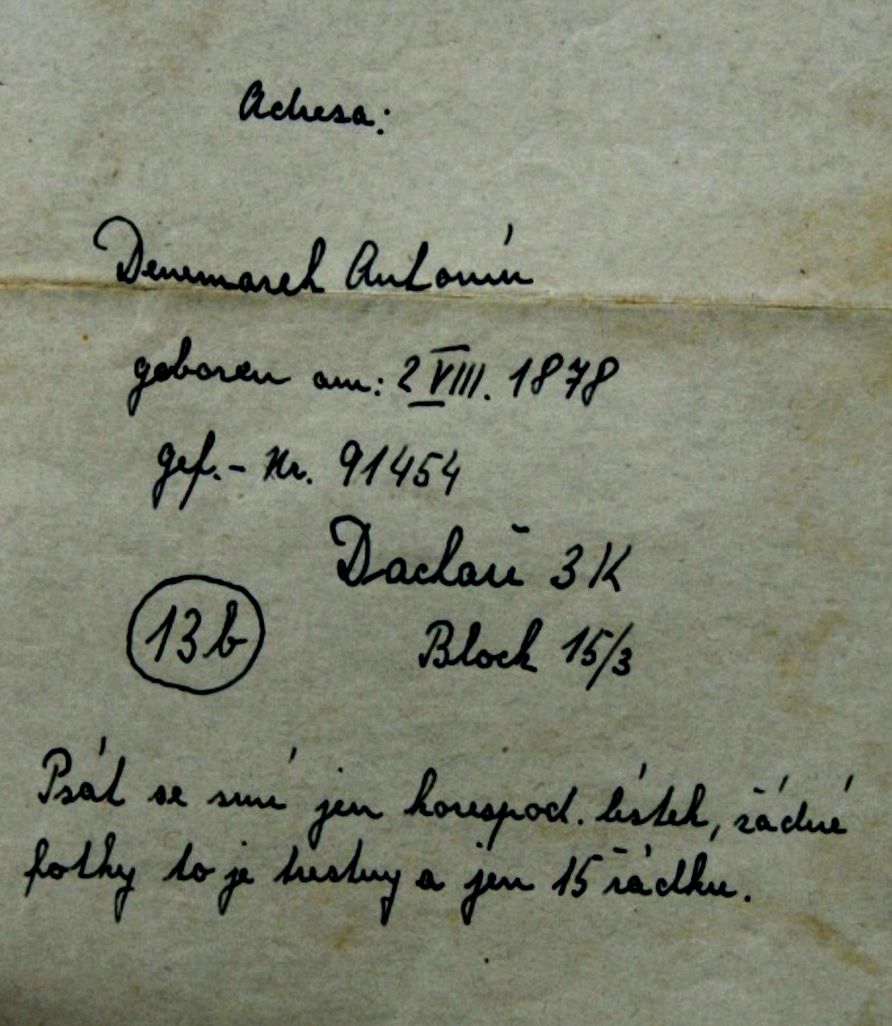 Adresa:
Denemarek Antonín
geboren am: 2 VIII. 1878
gef.- Nr. 91454
Dachau 3 K
13b
Block 15/3
Psát se smí jen korespod. lístek, žádné
fotky to je trestný a jen 15 řádku.